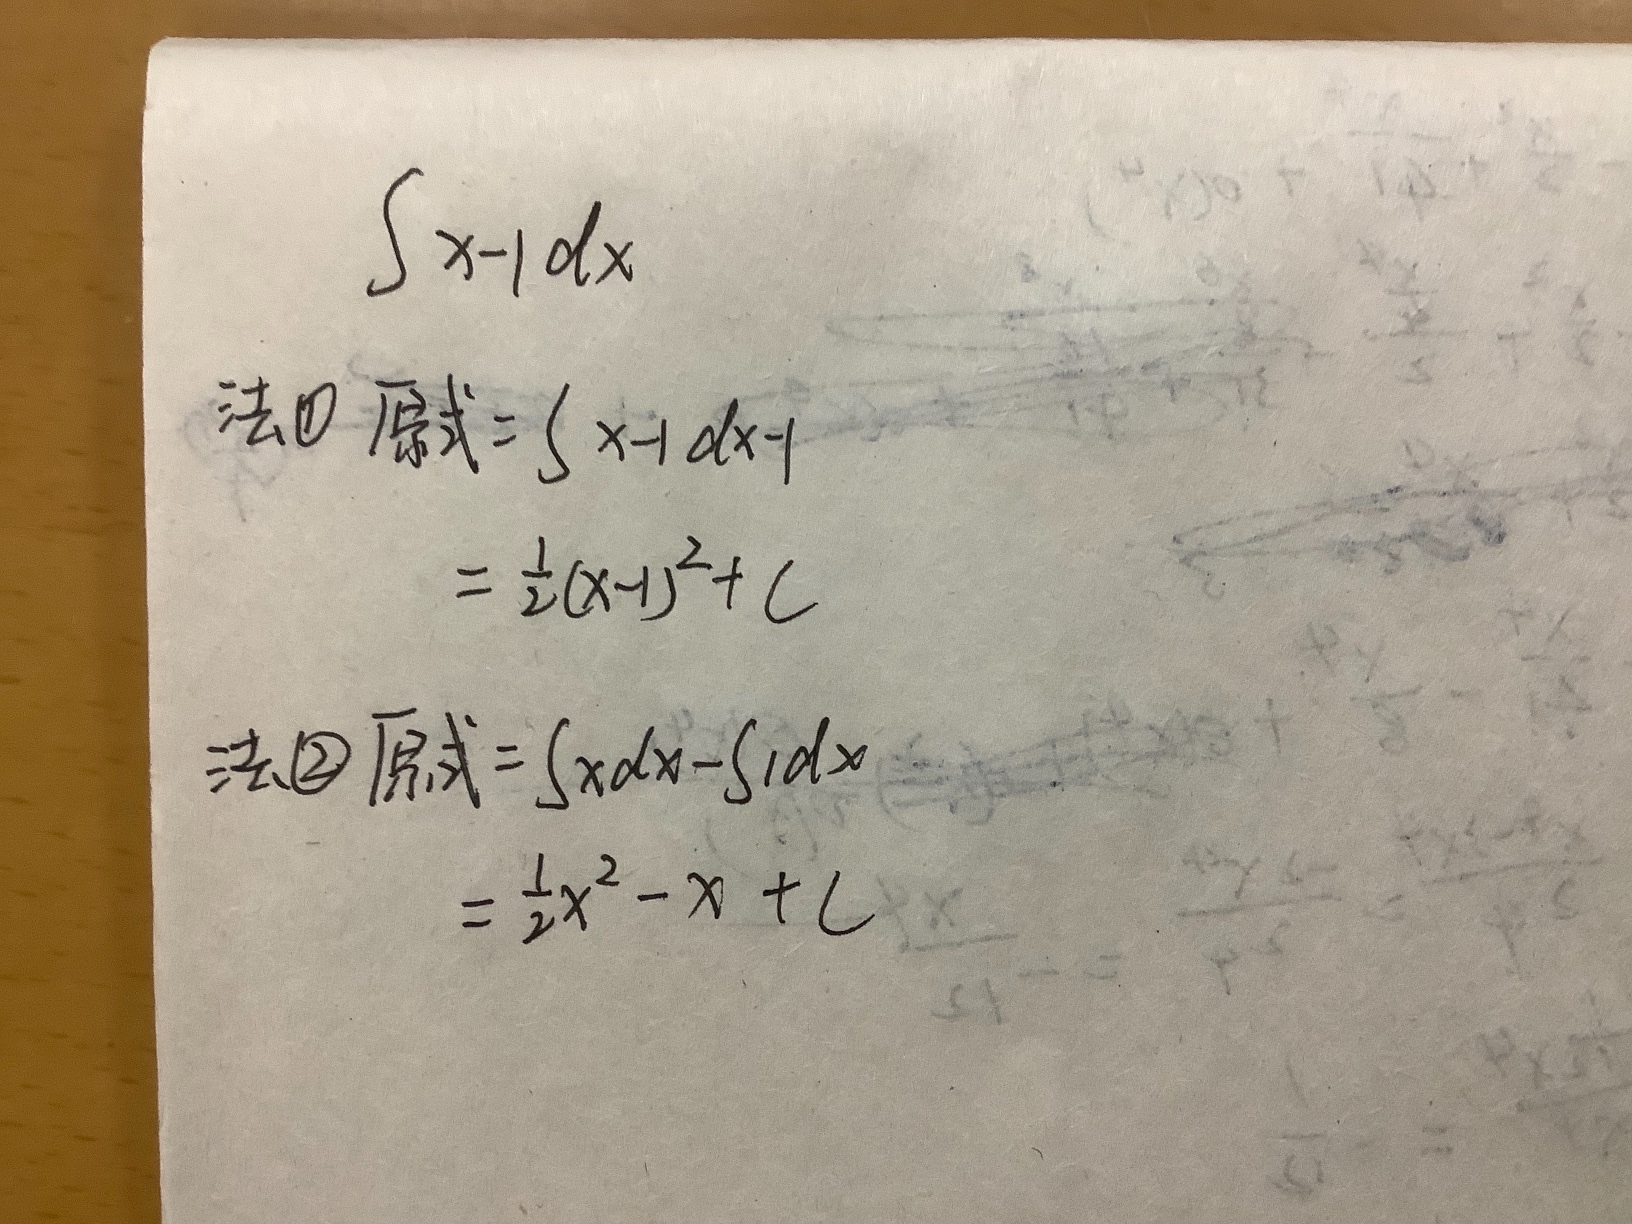 ∫ x-1 dx
法① 原式 = ∫ x-1 dx-1
= 1/2 (x-1)² + C
法② 原式 = ∫ x dx - ∫ 1 dx
= 1/2 x² - x + C